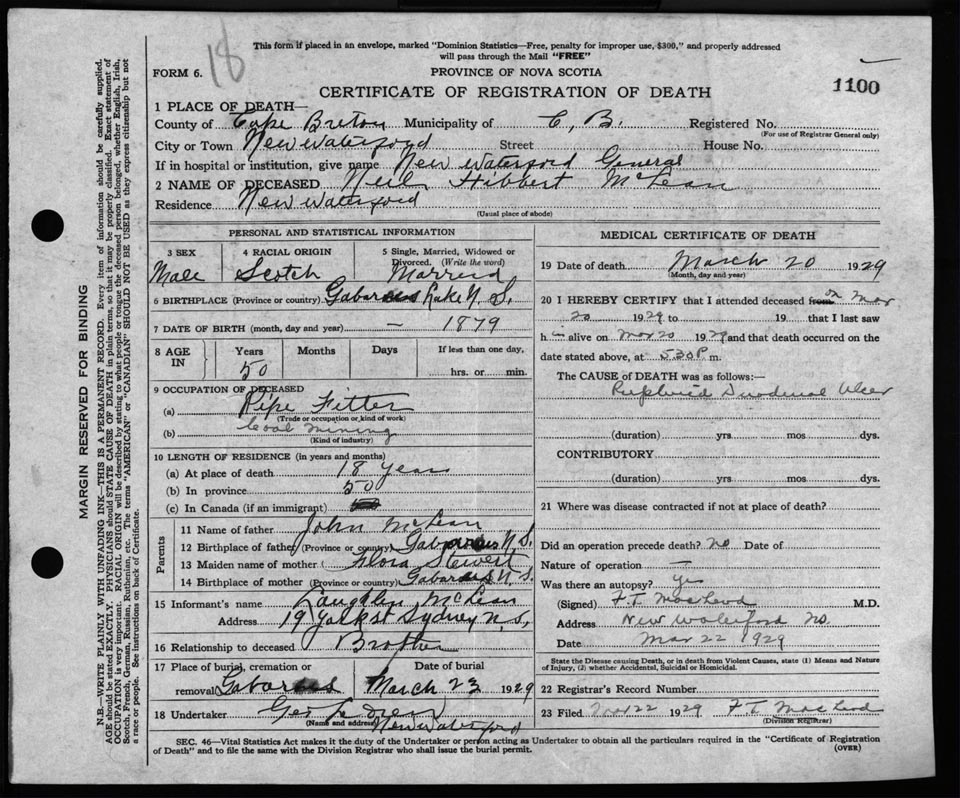 18
This form if placed in an envelope, marked "Dominion Statistics—Free, penalty for improper use, $300," and properly addressed
will pass through the Mail "FREE"
FORM 6.
PROVINCE OF NOVA SCOTIA
CERTIFICATE OF REGISTRATION OF DEATH
1100
1 PLACE OF DEATH—
County of Cape Breton Municipality of C. B. Registered No.
(For use of Registrar General only)
City or Town New Waterford Street House No.
If in hospital or institution, give name New Waterford General
2 NAME OF DECEASED Neil Hibbert McLean
Residence New Waterford
(Usual place of abode)
PERSONAL AND STATISTICAL INFORMATION
3 SEX 4 RACIAL ORIGIN 5 Single, Married, Widowed or Divorced. (Write the word)
Male Scotch Married
6 BIRTHPLACE (Province or country) Gabarus Lake N. S.
7 DATE OF BIRTH (month, day and year) — 1879
8 AGE IN Years Months Days If less than one day,
50 hrs. or min.
9 OCCUPATION OF DECEASED
(a) Pipe Fitter
(Trade or occupation or kind of work)
(b) Coal mining
(Kind of industry)
10 LENGTH OF RESIDENCE (in years and months)
(a) At place of death 18 years
(b) In province 50
(c) In Canada (if an immigrant)
Parents
11 Name of father John McLean
12 Birthplace of father (Province or country) Gabarus N. S.
13 Maiden name of mother Flora Stewert
14 Birthplace of mother (Province or country) Gabarus N. S.
15 Informant's name Laughlin McLean
Address 19 York st Sydney N. S,
16 Relationship to deceased Brother
17 Place of burial, cremation or removal Gabarus Date of burial March 23 1929
18 Undertaker Geo
(Name and address) New Waterford
MEDICAL CERTIFICATE OF DEATH
19 Date of death March 20 1929
(Month, day and year)
20 I HEREBY CERTIFY that I attended deceased from on Mar
20 1929 to 19 that I last saw
him alive on Mar 20 1929 and that death occurred on the
date stated above, at 5.30 P. m.
The CAUSE OF DEATH was as follows:—
Duodenal Ulcer
(duration) yrs. mos dys.
CONTRIBUTORY
(duration) yrs. mos. dys.
21 Where was disease contracted if not at place of death?
Did an operation precede death? no Date of
Nature of operation —
Was there an autopsy? Yes
(Signed) F. T. MacLeod M.D.
Address New Waterford NS.
Date Mar 22 1929
State the Disease causing Death, or in death from Violent Causes, state (1) Means and Nature
of Injury, (2) whether Accidental, Suicidal or Homicidal.
22 Registrar's Record Number
23 Filed Mar 22 1929 F. T. MacLeod
(Division Registrar)
SEC. 46—Vital Statistics Act makes it the duty of the Undertaker or person acting as Undertaker to obtain all the particulars required in the "Certificate of Registration
of Death" and to file the same with the Division Registrar who shall issue the burial permit.
(OVER)
MARGIN RESERVED FOR BINDING
N.B.—WRITE PLAINLY WITH UNFADING INK—THIS IS A PERMANENT RECORD. Every item of information should be carefully supplied.
AGE should be stated EXACTLY. PHYSICIANS should STATE CAUSE OF DEATH in plain terms, so that it may be properly classified. Exact statement of
OCCUPATION is very important. RACIAL ORIGIN will be described by stating to what people or tongue the deceased person belonged, whether English, Irish,
Scotch, French, German, Russian, Ruthenian, etc. The terms "AMERICAN" or "CANADIAN" SHOULD NOT BE USED as they express citizenship but not
a race or people. See instructions on back of Certificate.